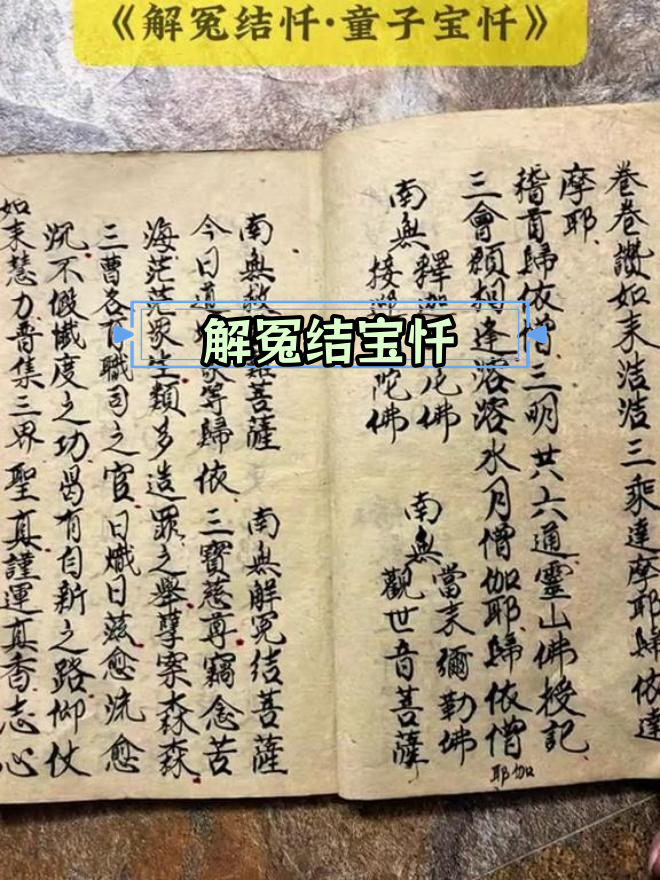 《解冤结忏·童子宝忏》
解冤结宝忏
卷卷讚如来浩浩三乘達摩耶歸依達
摩耶
稽首歸依僧三明共六通靈山佛授記
三會願相逢溶溶水月僧伽耶歸依僧
伽耶
南無
釋迦尼佛
接陀佛
南無
當来彌勒佛
觀世音菩薩
南無救菩薩 南無解冤結菩薩
今日道等歸依三寶慈尊竊念苦
海茫茫眾生類多造罪之舉孽案森森
三曹各有職司之官日熾日茲愈流愈
沉不假懺度之功曷有自新之路仰仗
如来慧力普集三界聖真謹運真香志心